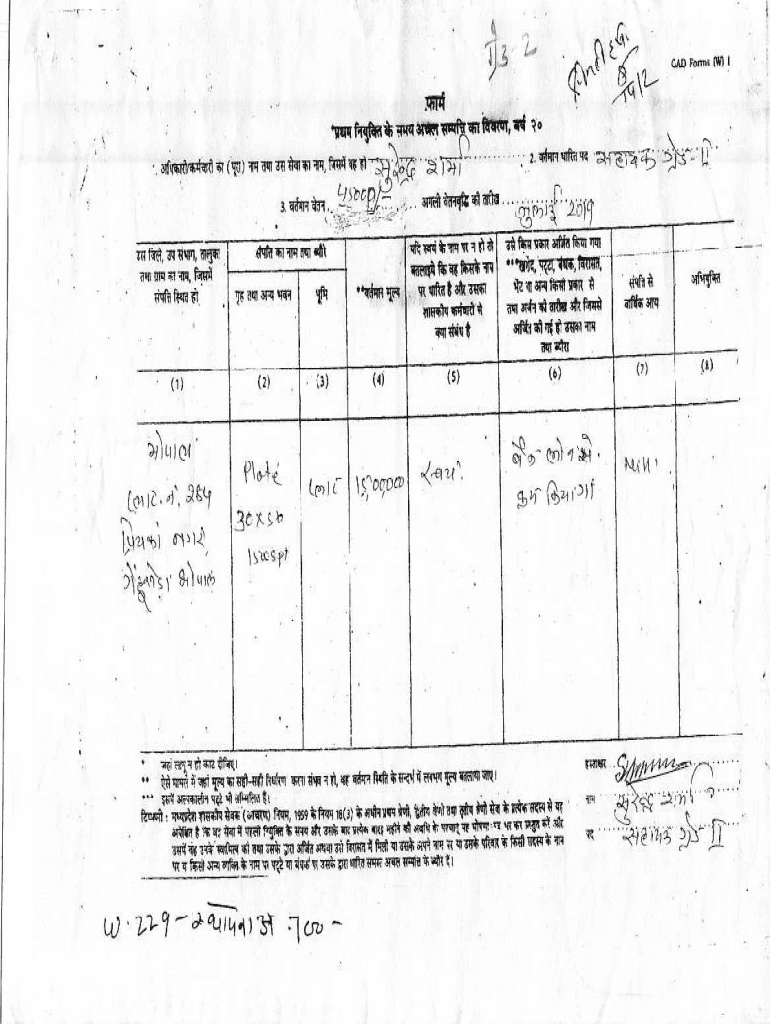 ग्रेड-2
GAD Forms (W) 1
फार्म
*प्रथम नियुक्ति के समय अचल सम्पत्ति का विवरण, वर्ष २०
1. अधिकारी/कर्मचारी का (पूरा) नाम तथा उस सेवा का नाम, जिसमें वह हो सुरेन्द्र शर्मा 2. वर्तमान धारित पद सहायक ग्रेड-II
3. वर्तमान वेतन 45000/- अगली वेतनवृद्धि की तारीख जुलाई 2019
उस जिले, उप संभाग, तालुका तथा ग्राम का नाम, जिसमें संपत्ति स्थित हो
संपत्ति का नाम तथा ब्यौरे
गृह तथा अन्य भवन
भूमि
**वर्तमान मूल्य
यदि स्वयं के नाम पर न हो तो बतलाइये कि वह किसके नाम पर धारित है और उसका शासकीय कर्मचारी से क्या संबंध है
उसे किस प्रकार अर्जित किया गया ***खरीद, पट्टा, बंधक, विरासत, भेंट या अन्य किसी प्रकार से तथा अर्जन की तारीख और जिससे अर्जित की गई हो उसका नाम तथा ब्यौरा
संपत्ति से वार्षिक आय
अभियुक्ति
(1) (2) (3) (4) (5) (6) (7) (8)
भोपाल
प्लाट नं. 264
प्रियंका नगर,
भोपाल
Plote
30x50
1500
प्लाट
15,00,000
स्वयं
बैंक लोन से
क्रय किया गया
* जहां लागू न हो काट दीजिए।
** ऐसे मामले में जहां मूल्य का सही-सही निर्धारण करना संभव न हो, वह वर्तमान स्थिति के सन्दर्भ में लगभग मूल्य बतलाया जाए।
*** इसमें अल्पकालीन पट्टे भी सम्मिलित हैं।
टिप्पणी: मध्यप्रदेश शासकीय सेवक (आचरण) नियम, 1959 के नियम 18(3) के अधीन प्रथम श्रेणी, द्वितीय श्रेणी तथा तृतीय श्रेणी सेवा के प्रत्येक सदस्य से यह
अपेक्षित है कि वह सेवा में पहली नियुक्ति के समय और उसके बाद प्रत्येक बारह महीने की अवधि के पश्चात् यह घोषणा पत्र भर कर प्रस्तुत करें और
उसमें वह उनके स्वामित्व की तथा उसके द्वारा अर्जित अथवा उसे विरासत में मिली या उसके अपने नाम पर या उसके परिवार के किसी सदस्य के नाम
पर या किसी अन्य व्यक्ति के नाम पर पट्टे या बंधक पर उसके द्वारा धारित समस्त अचल सम्पत्ति के ब्यौरे दें।
हस्ताक्षर
नाम सुरेन्द्र शर्मा
पद सहायक ग्रेड II
W.229-स्थापना अ .700-